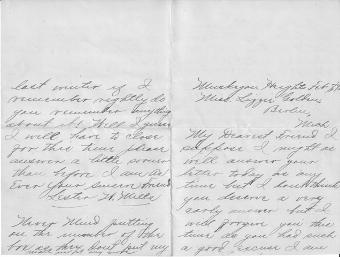 last winter if I
remember rightly do
you remember anything
about it. Well I guess
I will have to close
for this time please
answer a little sooner
than before I am as
Ever Your sincere friend
Lester W. Mills
Never Mind putting
on the number of the
box as they dont put my
Muskegon Heights Feb
Miss Lizzie
Mich
My Dearest Friend I
suppose I might as
well answer your
letter today as any
time but I dont think
you deserve a very
early answer but I
will forgive you this
time as you had such
a good excuse I am